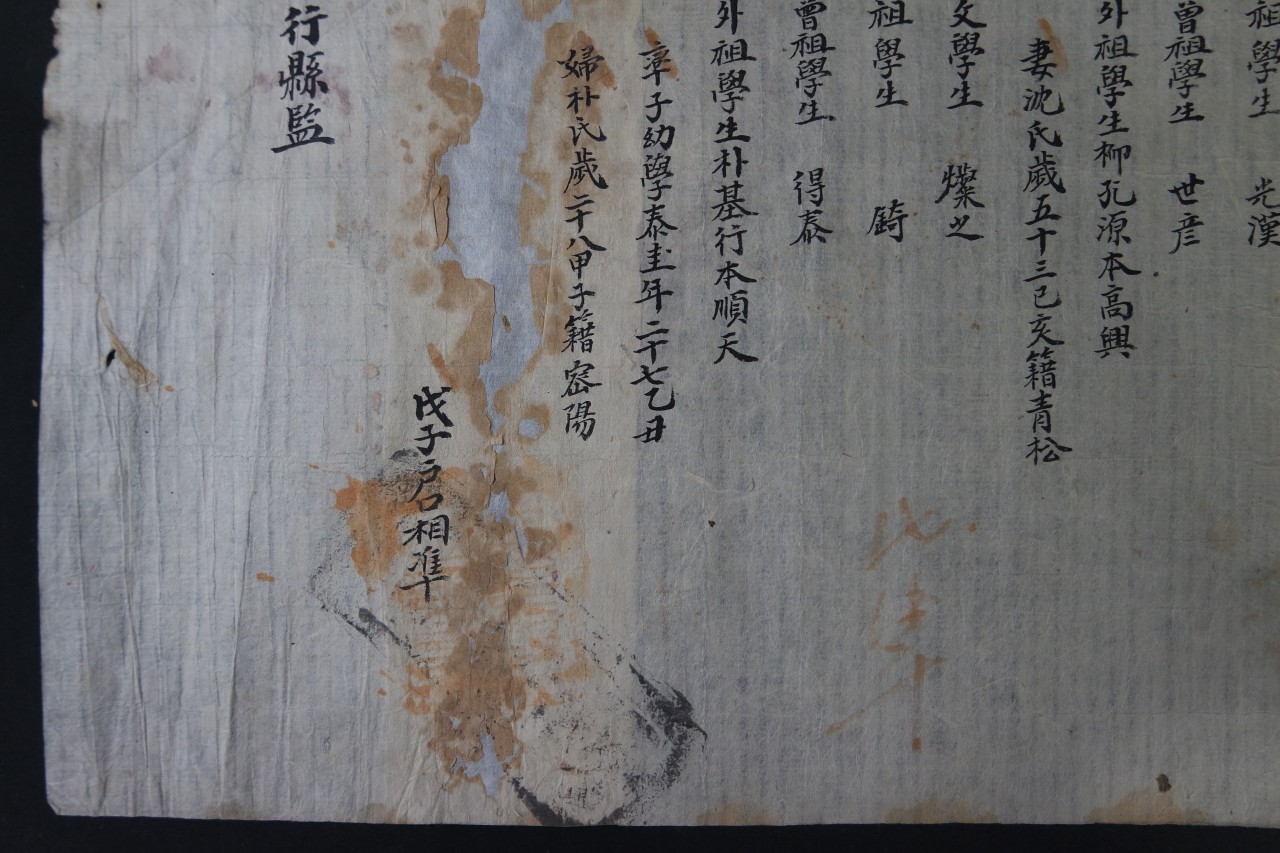 祖學生 光漢
曾祖學生 世彦
外祖學生柳孔源本高興
妻沈氏歲五十三己亥籍青松
父學生 燦之
祖學生 錡
曾祖學生 得泰
外祖學生朴基行本順天
率子幼學泰圭年二十七乙丑
婦朴氏歲二十八甲子籍密陽
戊子戶口相準
行縣監